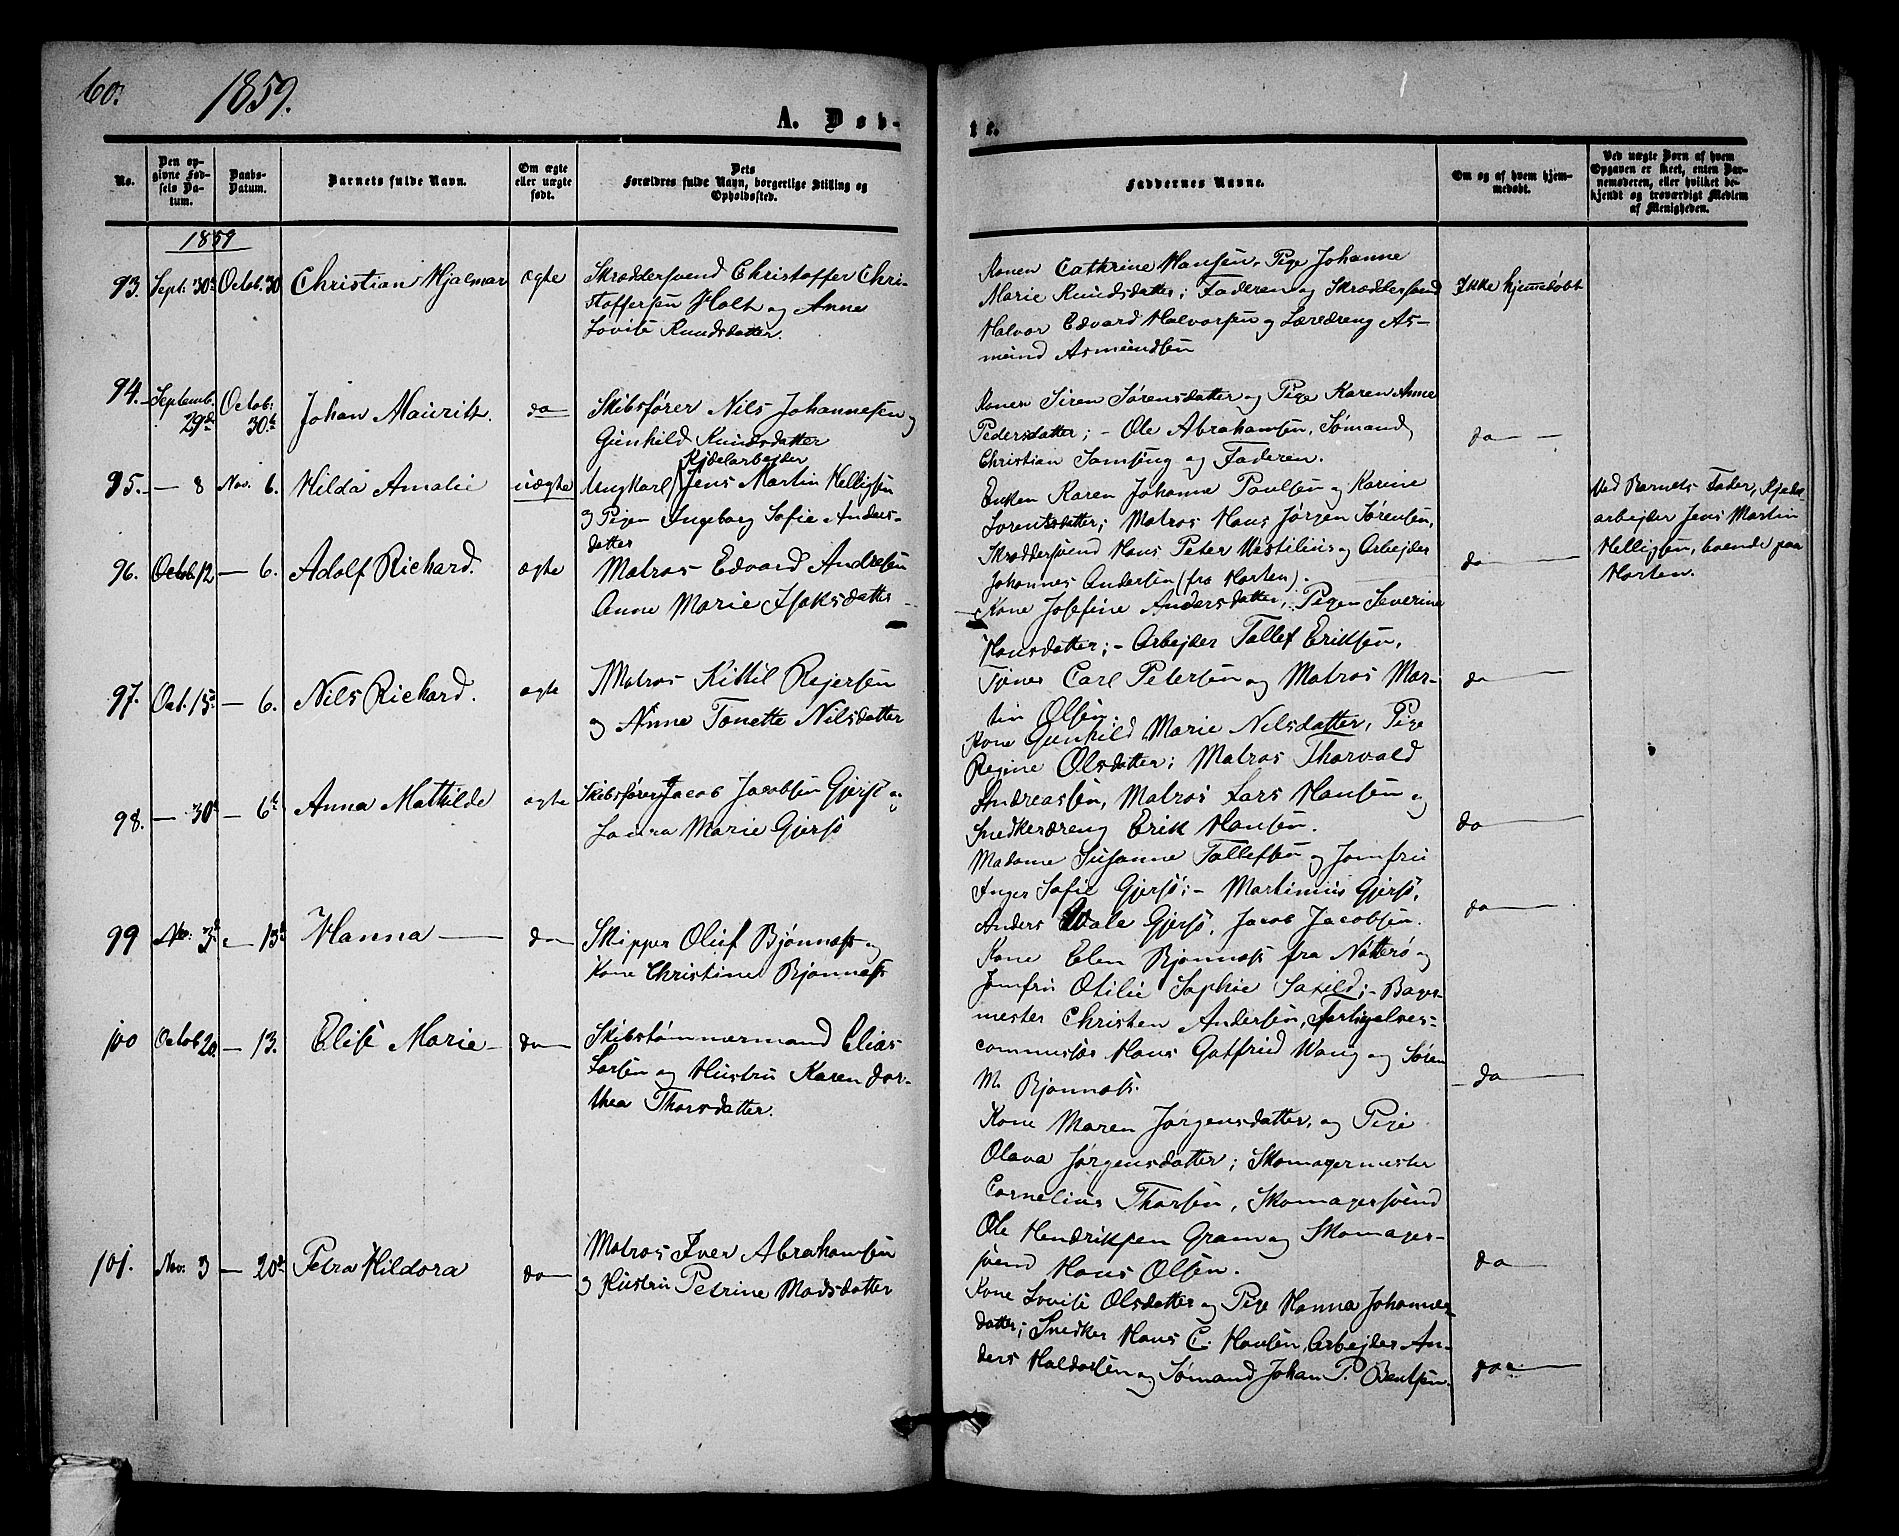 60.
1859.
A. Døb-
te.
No.
Den opgivne Fødsels Datum.
Daabs-Datum.
Barnets fulde Navn.
Om ægte eller uægte født.
Dets Forældres fulde Navn, borgerlige Stilling og Opholdssted.
Faddernes Navne.
Om og af hvem hjemmedøbt.
Ved uægte Børn af hvem Opgaven er skeet, enten Barnemoderen, eller hvilket bekjendt og troværdigt Medlem af Menigheden.
1859
93. Sept. 30te Octob. 30 Christian Hjalmar ægte Skræddersvend Christoffer Chri-
stoffersen Holt og Anne
Lovise Knudsdatter.
Konen Cathrine Hansen, Pige Johanne
Marie Knudsdatter; Faderen og Skræddersvend
Halvor Edvard Halvorsen og Læredreng As-
mund Asmundsen
Ikke hjemedøbt
94. Septemb. 29de Octob. 30te Johan Mauritz. do Skibsfører Nils Johannesen og
Gunhild Knudsdatter
Konen Siren Sørensdatter og Pige Karen Anne
Pedersdatter; - Ole Abrahamsen, Sømand
Christian Samsing og Faderen.
do
95. - 8 Nov. 6. Hilda Amalie uægte Ungkarl Kjedelarbejder Jens Martin Helligsen
og Pigen Ingeborg Sofie Anders-
datter
Enken Karen Johanne Paulsen og Karine
Lorentsdatter; Matros Hans Jørgen Sørensen,
Skræddersvend Hans Peter Vestilius og Arbejder
Johannes Andersen (fra Horten).
do
Ved Barnets Fader, Kjedel-
arbejder Jens Martin
Helligsen, boende paa
Horten.
96. Octob 12 - 6. Adolf Richard. ægte Matros Edvard Andresen
Anne Marie Isaksdatter
Kone Josefine Andersdatter, Pigen Severine
Hansdatter; - Arbejder Tallef Eriksen,
Tjener Carl Petersen og Matros Mar-
tin Olsen
do
97. Oct. 15de - 6. Nils Richard. ægte Matros Kittil Rejersen
og Anne Tonette Nilsdatter
Kone Gunhild Marie Nilsdatter, Pige
Regine Olsdatter; Matros Thorvald
Andreassen, Matros Lars Hansen og
Snedkerdreng Erik Hansen.
do
98. - 30te - 6te Anna Mathilde ægte Skibsfører Jacob Jacobsen Gjersø og
Laura Marie Gjersø
Madame Susanne Tallefsen og Jomfru
Inger Sofie Gjersø; - Martinius Gjersø,
Anders Gjersø, Jacob Jacobsen.
do
99 Nov: 3de - 13de Hanna do Skipper Oluf Bjønnæss og
Kone Christine Bjønnæss
Kone Elen Bjønnæss fra Nøtterø og
Jomfru Otilie Sophie Saxild; - Bager-
mester Christen Andersen,
Hans Gotfried Wang og Søren
M. Bjønnæss.
do
100 Octob 20. - 13. Elise Marie do Skibstømmermand Elias
Larsen og Hustru Karen Dor-
thea Thorsdatter.
Kone Maren Jørgensdatter, og Pige
Olava Jørgensdatter; Skomagermester
Cornelius Thorsen, Skomagersvend
Ole Hendriksen Gram og Skomager-
svend Hans Olsen.
do
101. Nov. 3 - 20de Petra Hildora do Matros Iver Abrahamsen
og Hustru Petrine Madsdatter
Kone Lovise Olsdatter og Pige Hanna Johannes
datter; Snedker Hans C. Hansen, Arbejder An-
ders Haldorsen og Sømand Johan P. Bentsen.
do